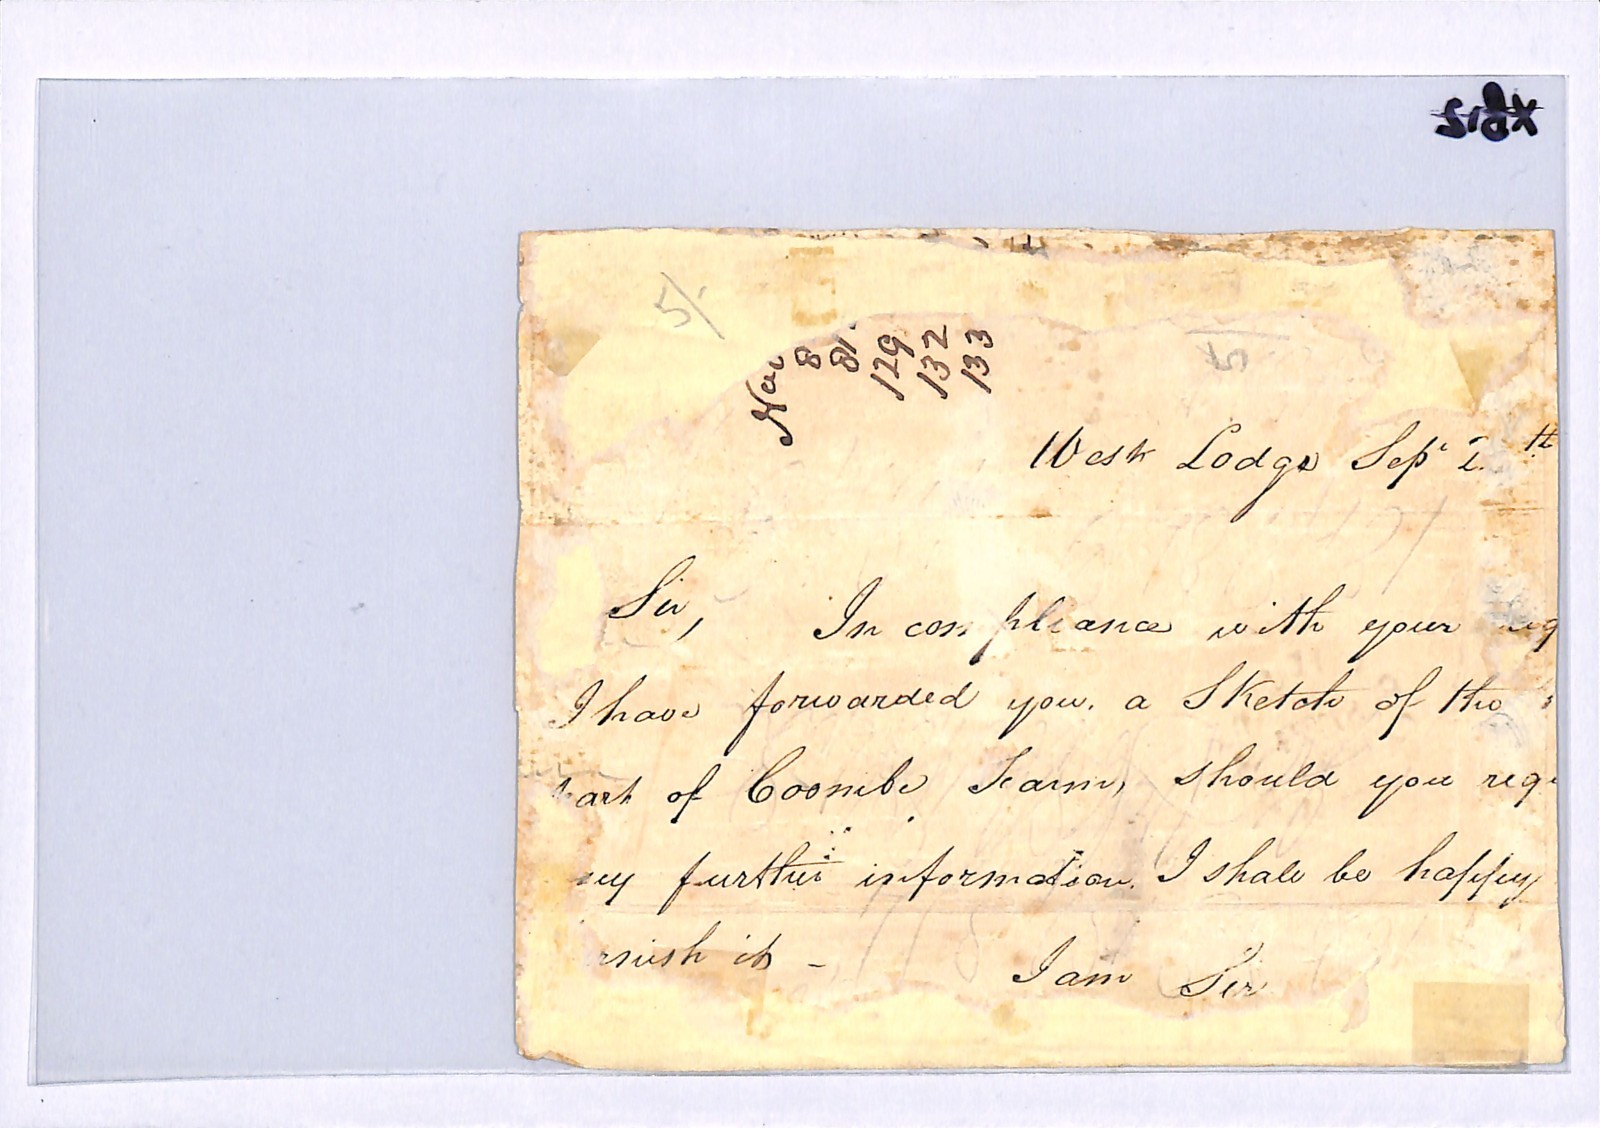 5/.
Nos
8
81
129
132
133
5
West Lodge Sepr 2. th
Sir, In compliance with your req
I have forwarded you. a Sketch of the
part of Coombe Farm, should you requ
ny further information. I shall be happy
rnish it –
I am Sir